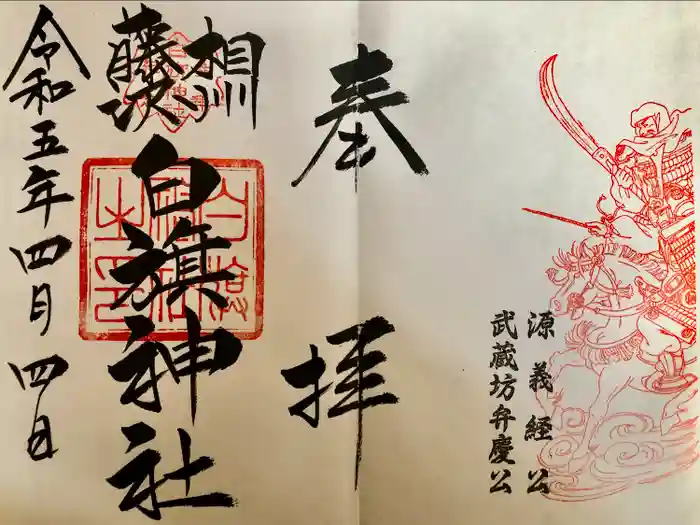 源義経公
武蔵坊弁慶公
奉拝
相州
藤沢
白旗神社
令和五年四月四日